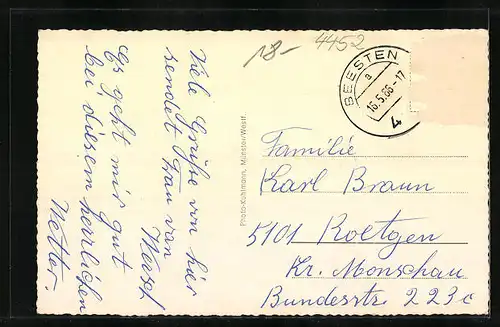 18.-
4452
BEESTEN
a
16.5.66-17
4
Viele Grüße von hier
sendet Frau van
Wersch
Es geht mir gut
bei diesem herrlichen
Wetter.
Photo-Kuhlmann, Münster/Westf.
Familie
Karl Braun
5101 Roetgen
Kr. Monschau
Bundesstr. 223c